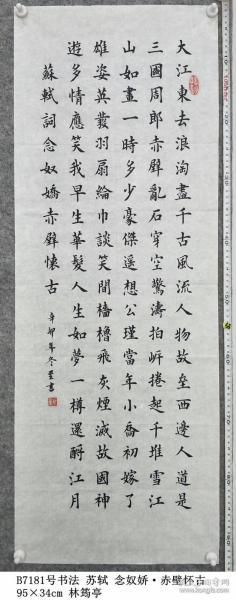 大江東去浪淘盡千古風流人物故壘西邊人道是
三國周郎赤壁亂石穿空驚濤拍岍捲起千堆雪江
山如畫一時多少豪傑遥想公瑾當年小喬初嫁了
雄姿英發羽扇綸巾談笑間檣櫓飛灰煙滅故國神
遊多情應笑我早生華髮人生如夢一樽還酹江月
蘇軾詞念奴嬌赤壁懷古
辛卯年冬 書
B7181号书法 苏轼 念奴娇·赤壁怀古
95×34cm 林筠亭